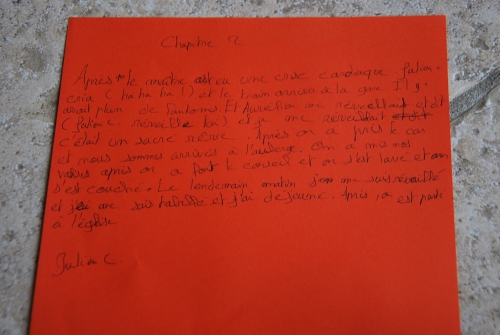 Chapitre 2
Après le maître est eu une crise cardiaque. Julian
cria (ha ha ha !) et le train arriva à la gare Il y
avait plein de fantomes. Et Aurélien me réveillait et dit
(Julian C. réveille toi) et je me réveillait
c'était un sacré rêve. Après on a pris le car
et nous sommes arrivés à l'auberge. On a mis nos
valises après on a fait le conseil et on s'est lavé et on
s'est couché. Le lendemain matin je me suis réveillé
et je me suis habillé et j'ai déjeuné. Après, on est partis
à l'église
Julian C.